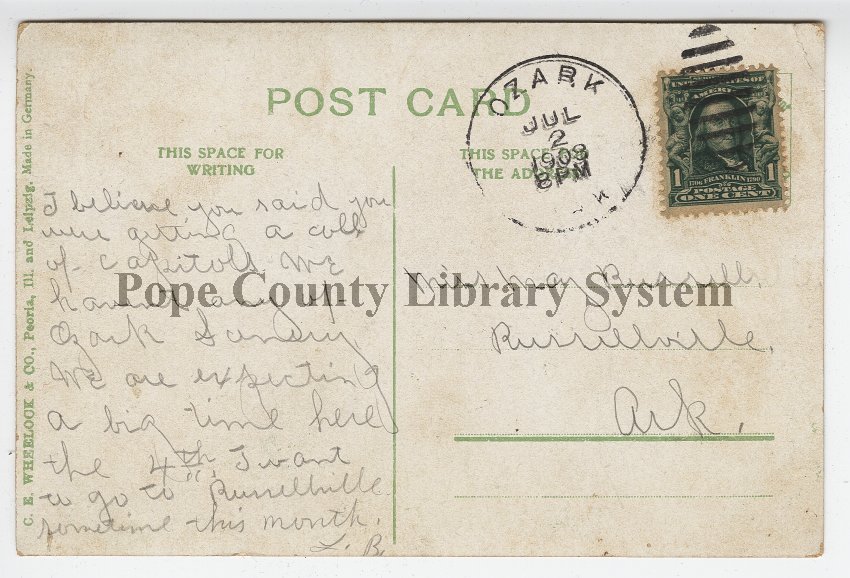 POST CARD
THIS SPACE FOR
WRITING
THIS SPACE FOR
THE ADDRESS
OZARK
JUL
2
1908
8 PM
K
UNITED STATES OF
AMERICA
1 1706 FRANKLIN 1790 1
POSTAGE
ONE CENT
C. E. WHEELOCK & CO., Peoria, Ill. and Leipzig. Made in Germany.
I believe you said you
were getting a coll
of Capitols. We
havent any of
Ozark
We are expecting
a big time here
the 4th. I want
to go to Russellville
sometime this month.
L. B.
Miss May Russell,
Russellville,
Ark.
Pope County Library System